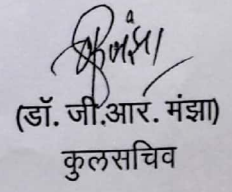 (डॉ. जी.आर. मंझा)
कुलसचिव